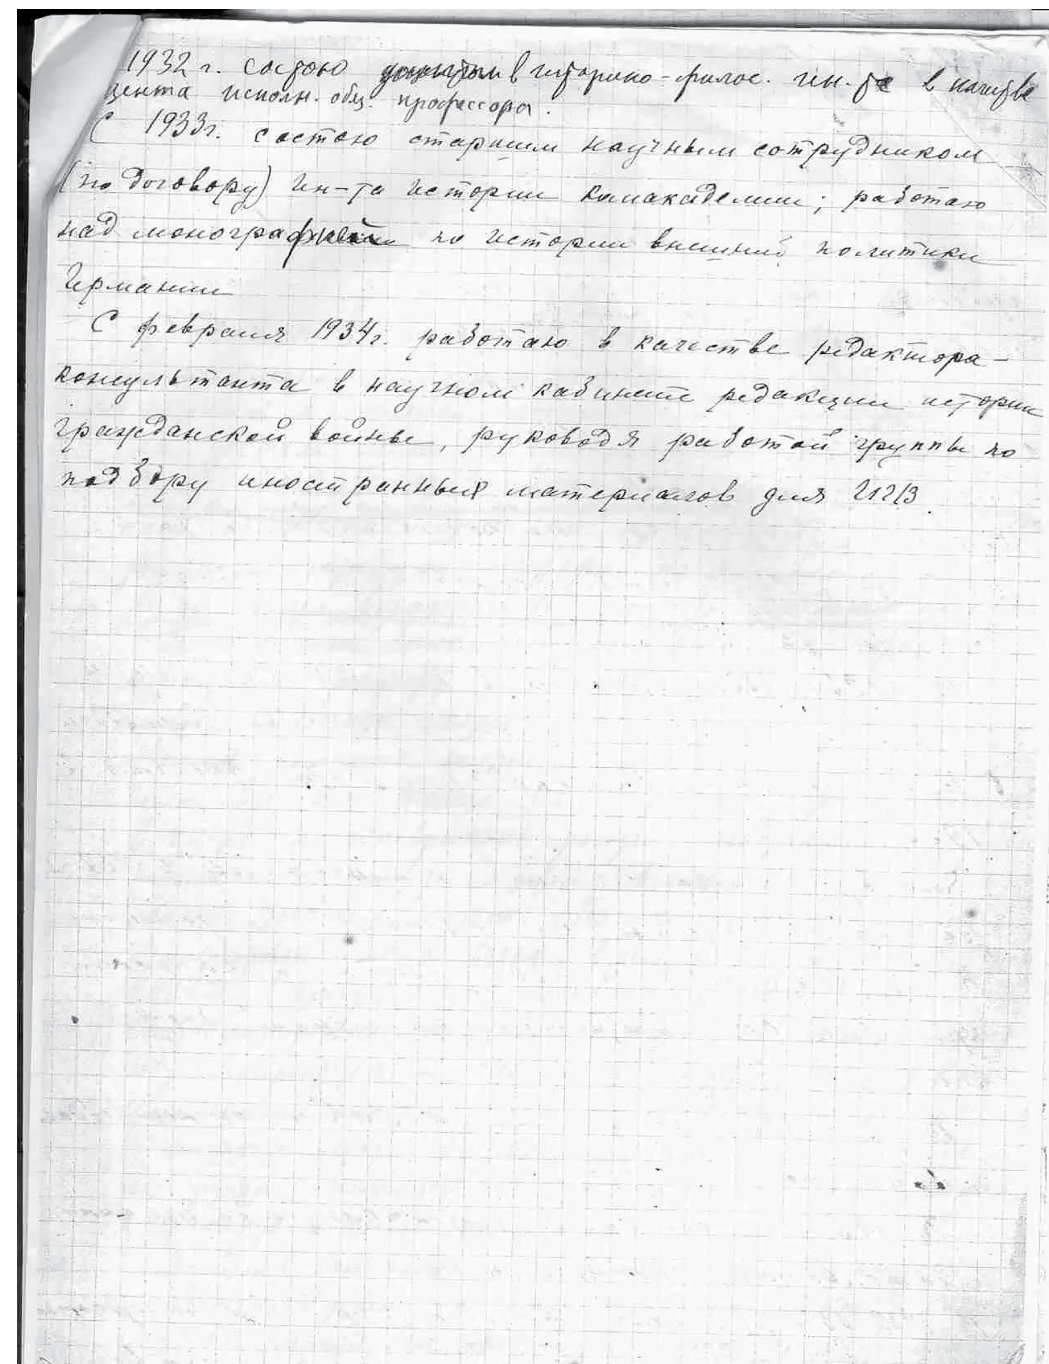 1932 г. состою в историко-филос. ин-те в качестве
цента исполн. общ. профессора.
С 1933г. состою старшим научным сотрудником
(по договору) ин-та истории Комакадемии; работаю
над монографией по истории внешней политики
Германии
С февраля 1934г. работаю в качестве редактора-
консультанта в научном кабинете редакции истории
гражданской войны, руководя работой группы по
подбору иностранных материалов для ИГВ.